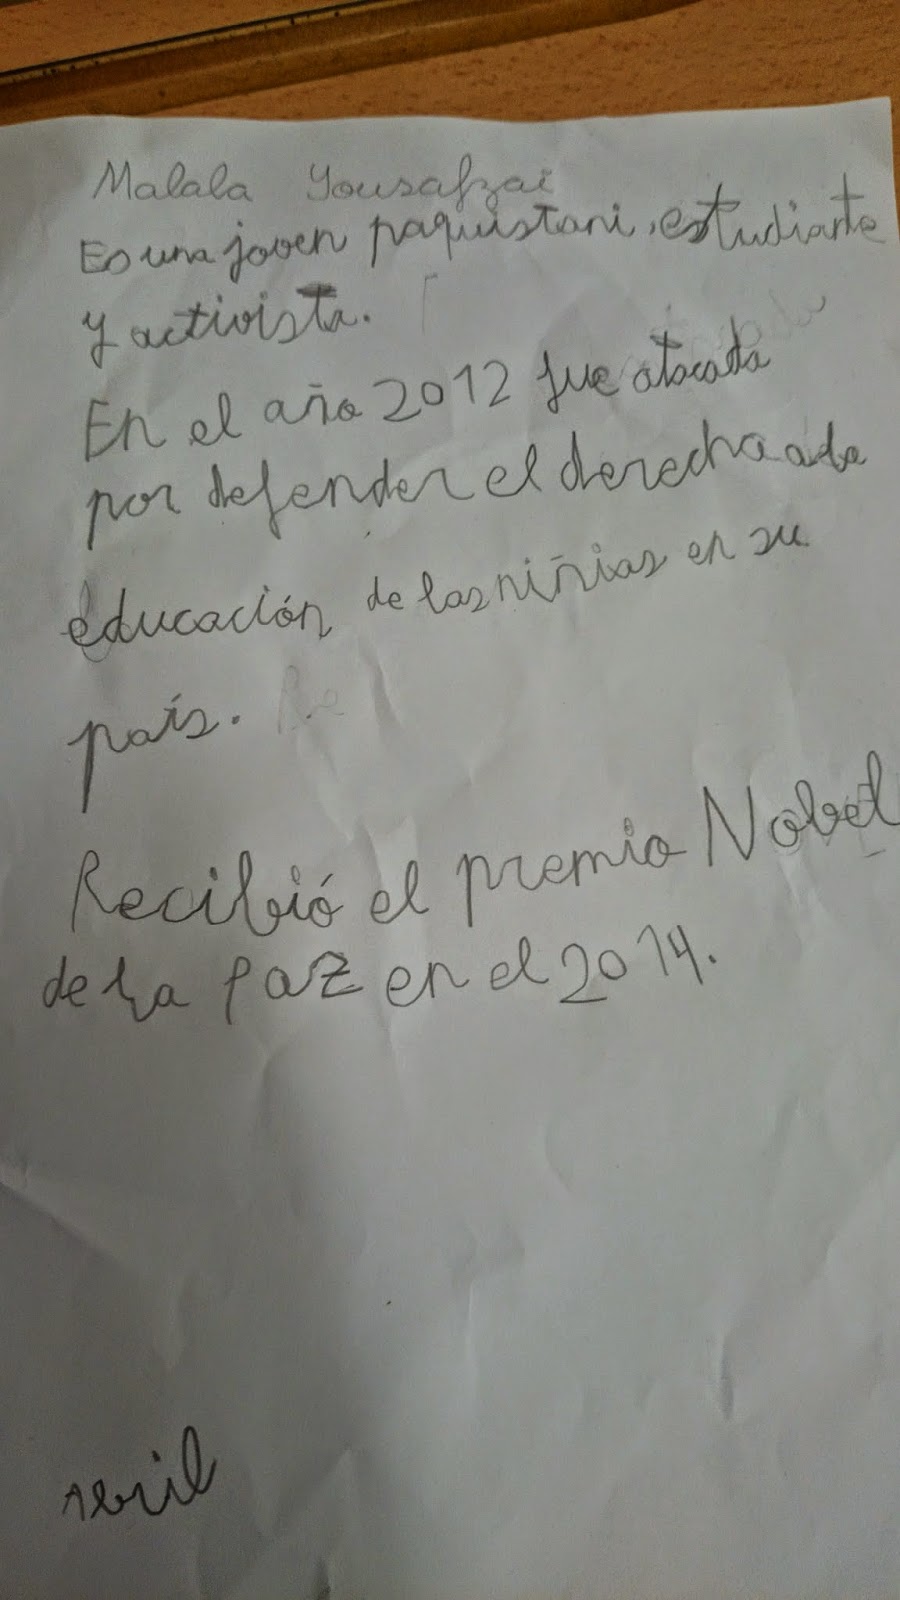 Malala Yousafzai
Es una joven paquistani, estudiante
y activista.
En el año 2012 fue atacada
por defender el derecho a la
educación de las niñias en su
país.
Recibió el premio Nobel
de la Paz en el 2014.
Abril